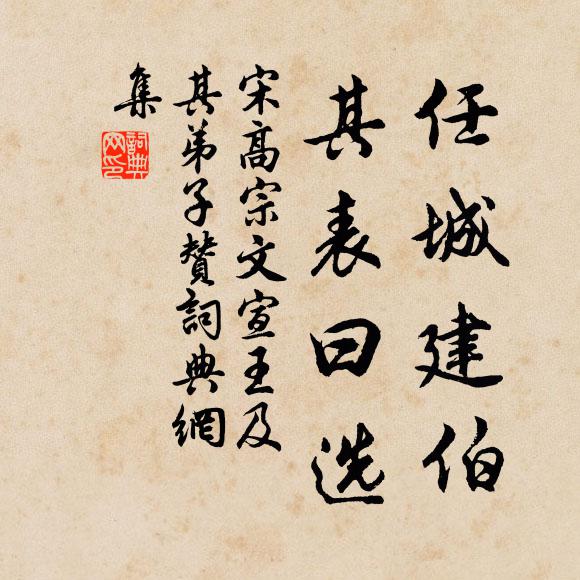 任城建伯
其表曰选
宋高宗文宣王及
其弟子赞詞典網
集
詞典
网印